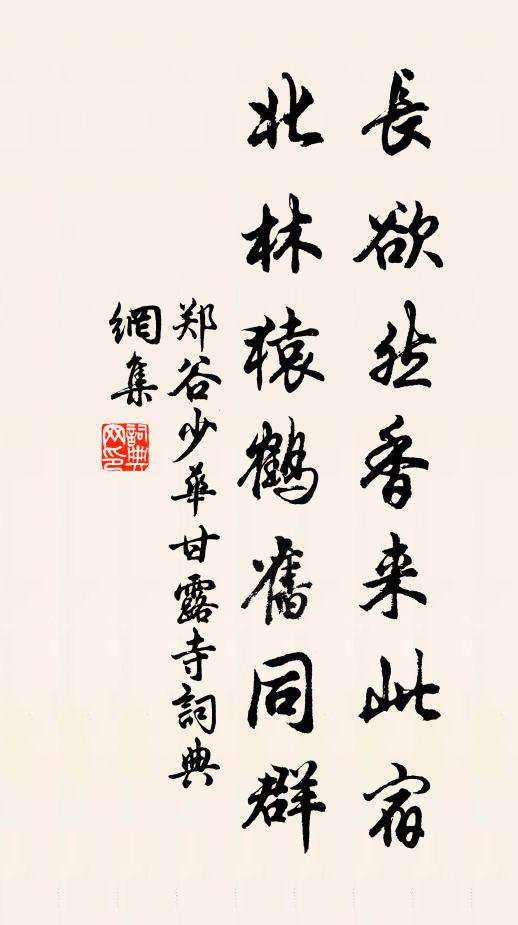 長欲然香来此宿
北林猿鶴舊同群
郑谷少華甘露寺詞典
網集
詞典網印